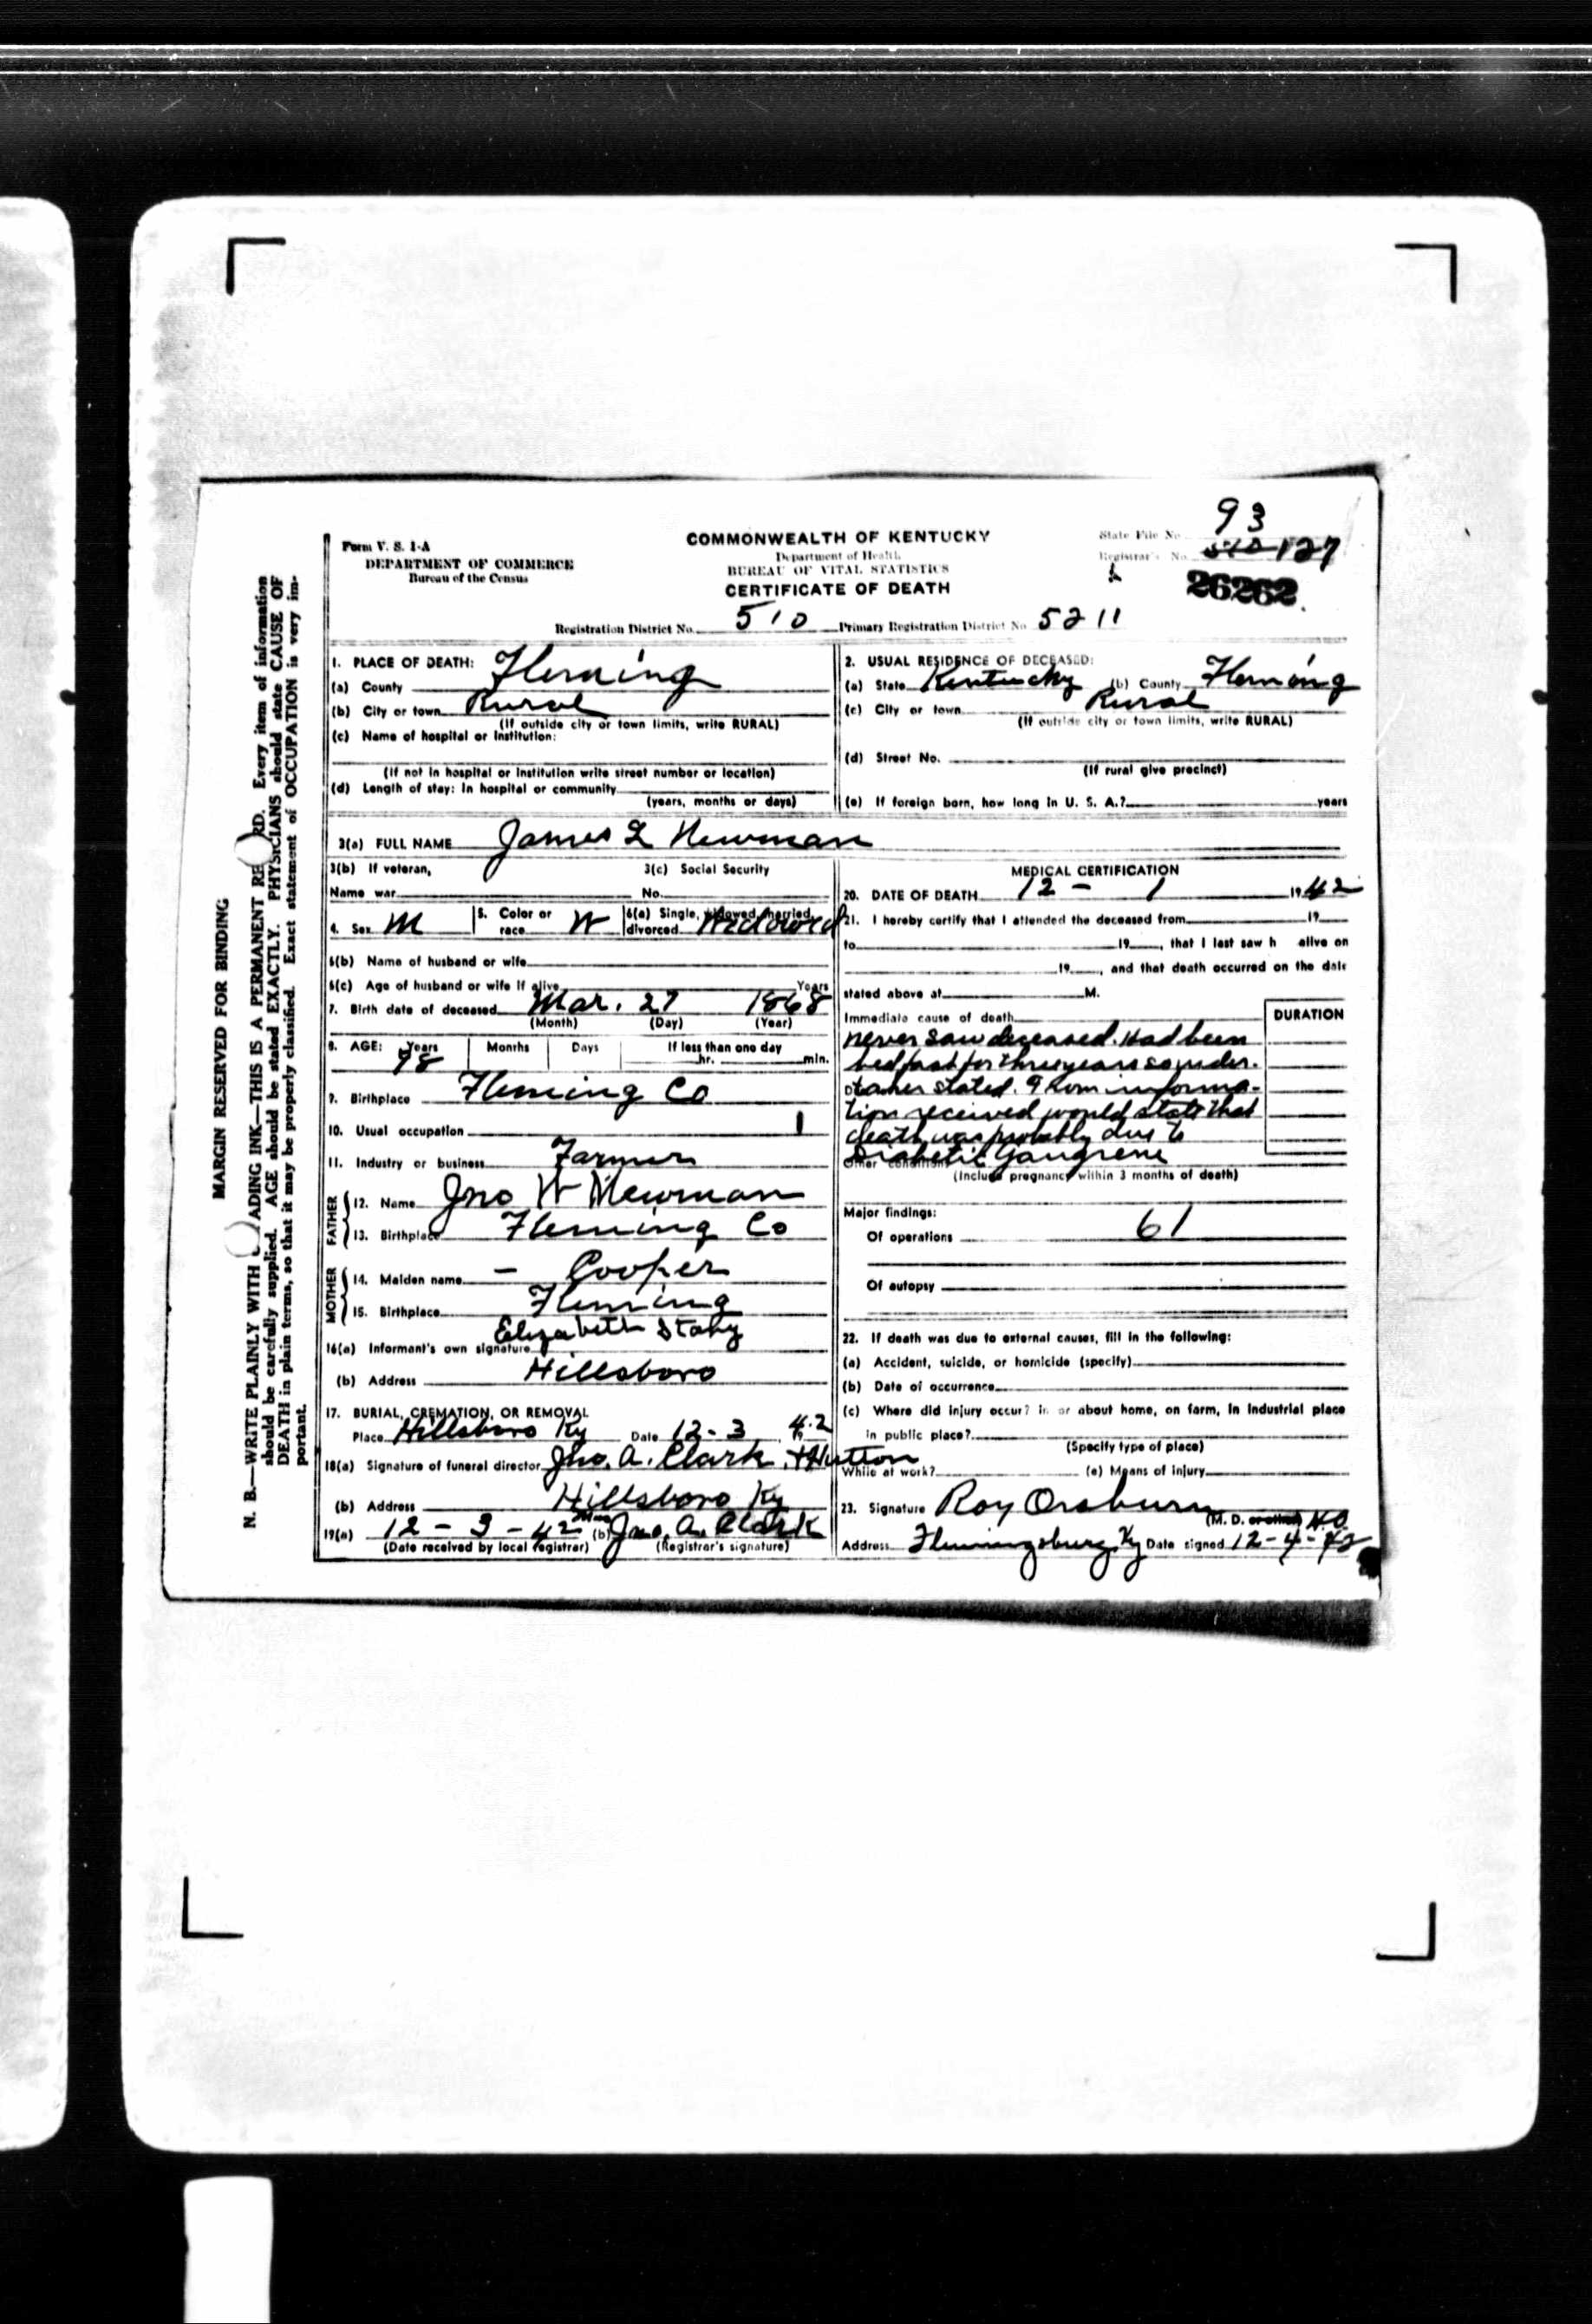 93
Form V. S. 1-A
DEPARTMENT OF COMMERCE
Bureau of the Census
COMMONWEALTH OF KENTUCKY
Department of Health
BUREAU OF VITAL STATISTICS
CERTIFICATE OF DEATH
State File No.
Registrar's No. 510 127
26262
Registration District No. 510 Primary Registration District No. 5211
MARGIN RESERVED FOR BINDING
N. B.—WRITE PLAINLY WITH ADING INK—THIS IS A PERMANENT RE RD. Every item of information
should be carefully supplied. AGE should be stated EXACTLY. PHYSICIANS should state CAUSE OF
DEATH in plain terms, so that it may be properly classified. Exact statement of OCCUPATION is very im-
portant.
1. PLACE OF DEATH:
(a) County Fleming
(b) City or town Rural
(If outside city or town limits, write RURAL)
(c) Name of hospital or institution:
(If not in hospital or institution write street number or location)
(d) Length of stay: In hospital or community
(years, months or days)
2. USUAL RESIDENCE OF DECEASED:
(a) State Kentucky (b) County Fleming
(c) City or town Rural
(If outside city or town limits, write RURAL)
(d) Street No.
(If rural give precinct)
(e) If foreign born, how long in U. S. A.? years
3(a) FULL NAME James L Newman
3(b) If veteran,
Name war
3(c) Social Security
No.
4. Sex M
5. Color or race W
6(a) Single, widowed, married, divorced Widowed
6(b) Name of husband or wife
6(c) Age of husband or wife if alive Years
7. Birth date of deceased Mar. 27 1868
(Month) (Day) (Year)
8. AGE: Years Months Days If less than one day
98 hr. min.
9. Birthplace Fleming Co
10. Usual occupation
11. Industry or business Farmer
FATHER
12. Name Jno W Newman
13. Birthplace Fleming Co
MOTHER
14. Maiden name — Cooper
15. Birthplace Fleming
16(a) Informant's own signature Elizabeth
(b) Address Hillsboro
17. BURIAL, CREMATION, OR REMOVAL
Place Hillsboro Ky Date 12-3 42
18(a) Signature of funeral director Jno. A. Clark + Hutton
(b) Address Hillsboro Ky
19(a) 12-3-42 (b) Jno. A. Clark
(Date received by local registrar) (Registrar's signature)
MEDICAL CERTIFICATION
20. DATE OF DEATH 12 - 1 1942
21. I hereby certify that I attended the deceased from 19
to 19 , that I last saw h alive on
19 , and that death occurred on the date
stated above at M.
Immediate cause of death
DURATION
never saw deceased. Had been
bedfast for three years so under-
taker stated. From informa-
tion received would state that
death was probably due to
Diabetic Gangrene
Other conditions
(Include pregnancy within 3 months of death)
Major findings:
Of operations 61
Of autopsy
22. If death was due to external causes, fill in the following:
(a) Accident, suicide, or homicide (specify)
(b) Date of occurrence
(c) Where did injury occur? in or about home, on farm, in industrial place
in public place?
(Specify type of place)
While at work? (e) Means of injury
23. Signature Roy Orsburn
(M. D. or other)
Address Flemingsburg Ky Date signed 12-4-42